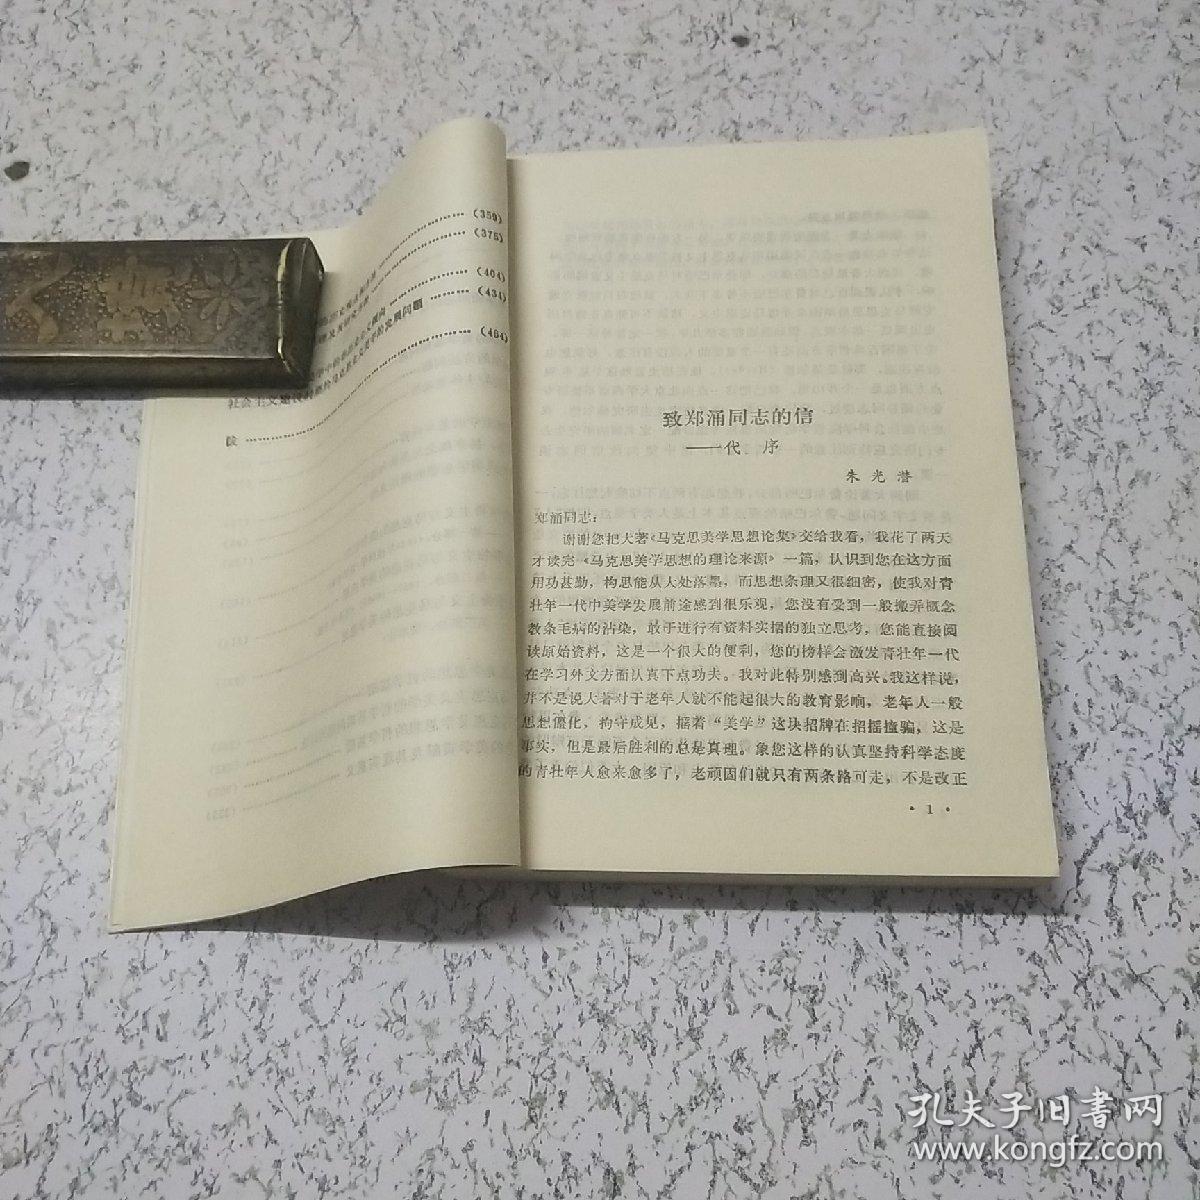 (359)
(375)
(404)
(434)
(464)
社会主义
发展问题
致郑涌同志的信
——代 序
朱光潜
郑涌同志：
谢谢您把大著《马克思美学思想论集》交给我看，我花了两天
才读完《马克思美学思想的理论来源》一篇，认识到您在这方面
用功甚勤，构思能从大处落墨，而思想条理又很细密，使我对青
壮年一代中美学发展前途感到很乐观，您没有受到一般搬弄概念
教条毛病的沾染，敢于进行有资料实据的独立思考，您能直接阅
读原始资料，这是一个很大的便利，您的榜样会激发青壮年一代
在学习外文方面认真下点功夫。我对此特别感到高兴。我这样说，
并不是说大著对于老年人就不能起很大的教育影响，老年人一般
思想僵化，拘守成见，据着“美学”这块招牌在招摇撞骗，这是
事实，但是最后胜利的总是真理。象您这样的认真坚持科学态度
的青壮年人愈来愈多了，老顽固们就只有两条路可走，不是改正
·1·
孔夫子旧书网
www.kongfz.com